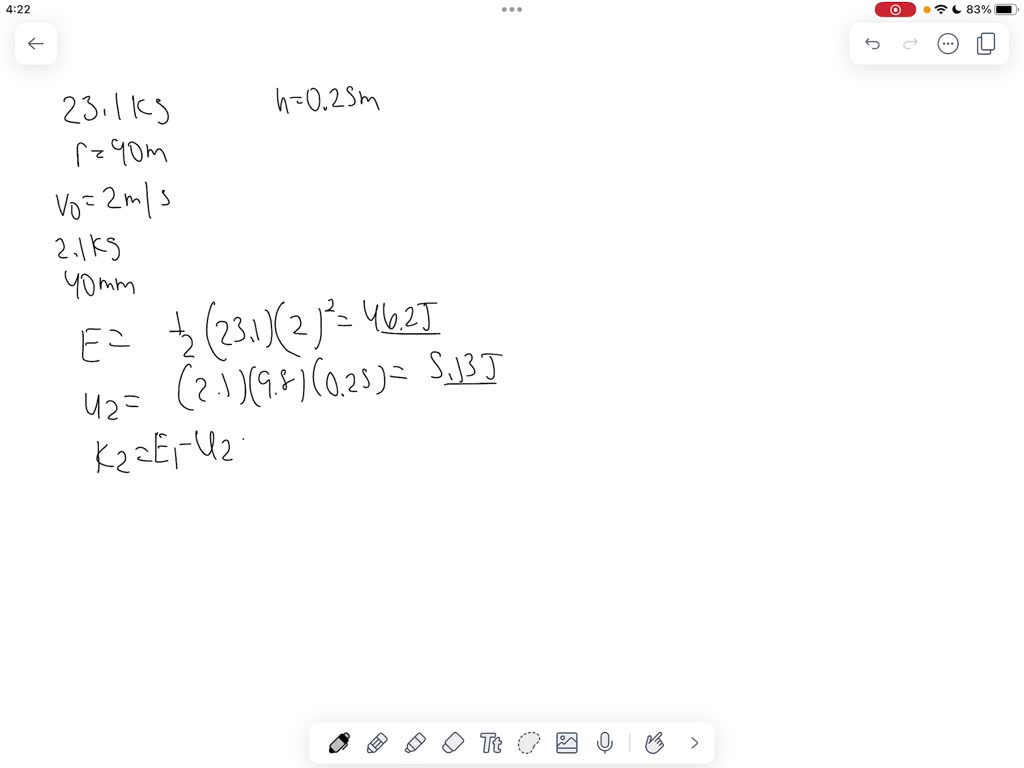 4:22
83%
23.1kg
h=0.25m
r=90m
v0=2m/s
2.1kg
40mm
E= 1/2 (23.1)(2)²=46.2J
U2= (2.1)(9.8)(0.25)= 5.13J
K2=E1-U2
Tt